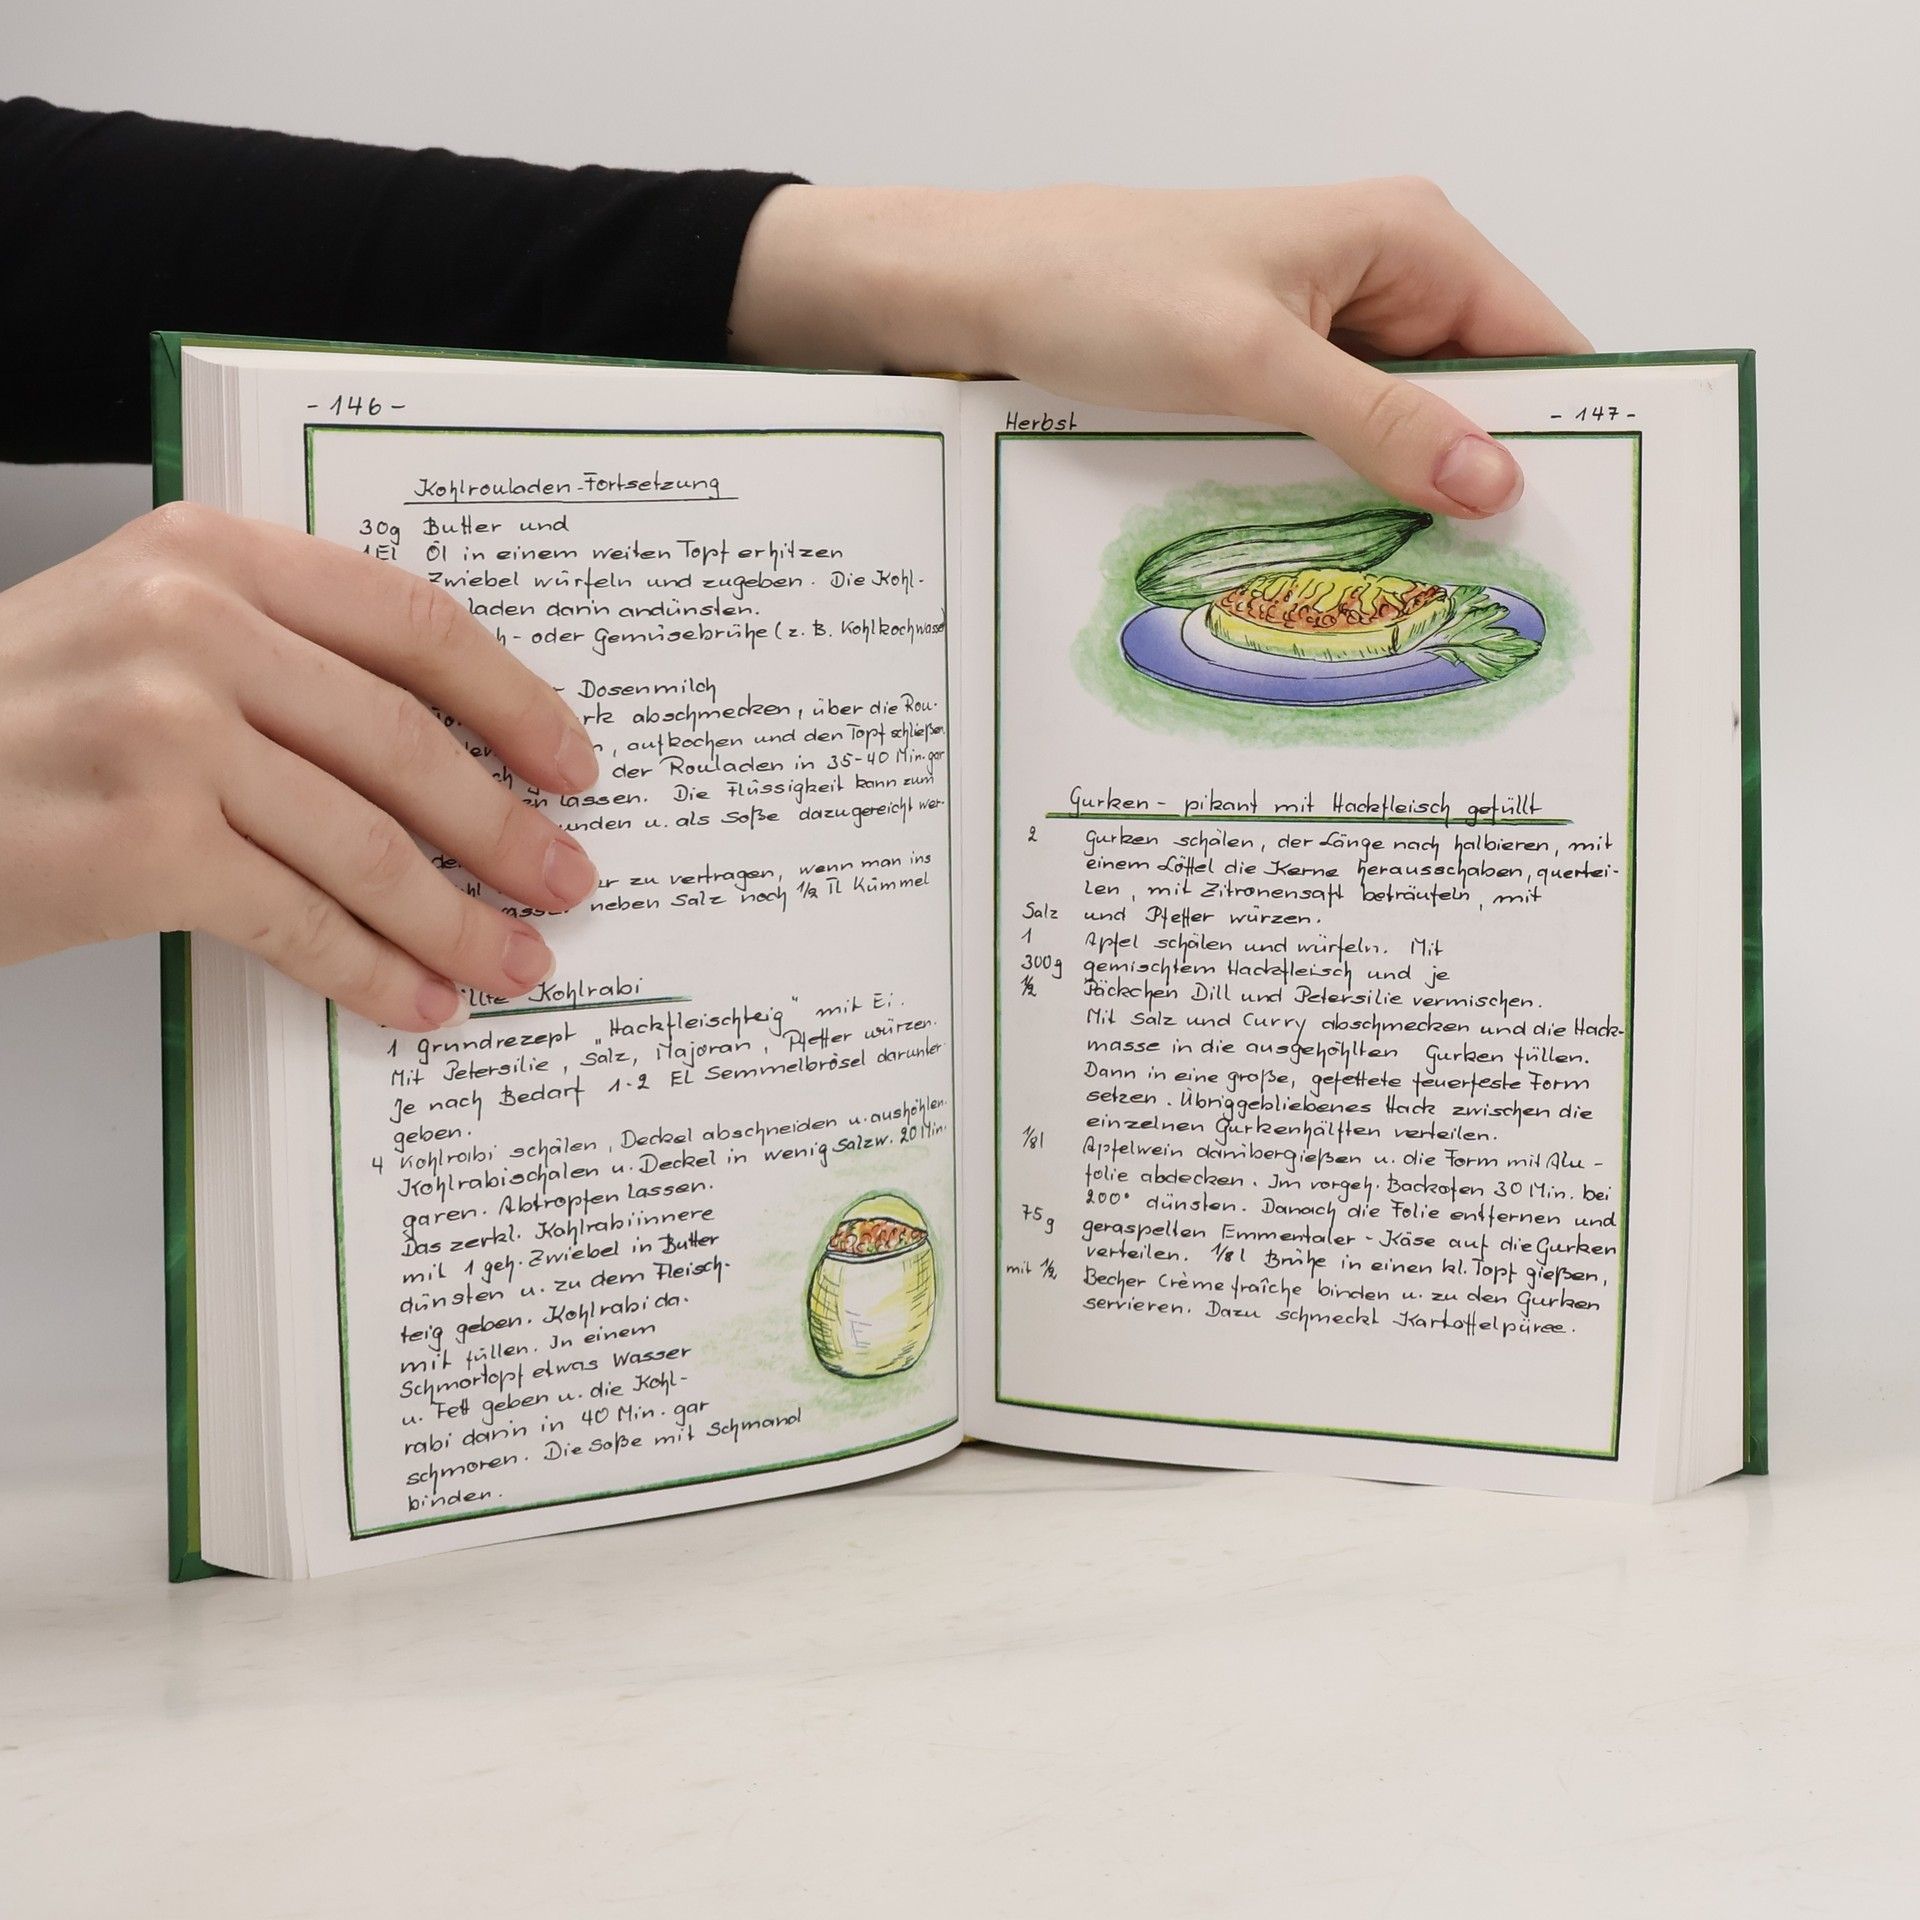 - 146 -
Kohlrouladen-Fortsetzung
30g Butter und
1El Öl in einem weiten Topf erhitzen
Zwiebel würfeln und zugeben. Die Kohl-
laden darin andünsten.
- oder Gemüsebrühe (z. B. Kohlkochwasser
Dosenmilch
abschmecken, über die Rou-
, aufkochen und den Topf schließen.
der Rouladen in 35-40 Min. gar
lassen. Die Flüssigkeit kann zum
u. als Soße dazugereicht wer-
zu vertragen, wenn man ins
neben Salz noch 1/2 Tl Kümmel
Kohlrabi
1 Grundrezept „Hackfleischteig" mit Ei.
Mit Petersilie, Salz, Majoran, Pfeffer würzen.
Je nach Bedarf 1-2 El Semmelbrösel darunter-
geben.
4 Kohlrabi schälen, Deckel abschneiden u. aushöhlen.
Kohlrabischalen u. Deckel in wenig Salzw. 20 Min.
garen. Abtropfen lassen.
Das zerkl. Kohlrabiinnere
mit 1 geh. Zwiebel in Butter
dünsten u. zu dem Fleisch-
teig geben. Kohlrabi da-
mit füllen. In einem
Schmortopf etwas Wasser
u. Fett geben u. die Kohl-
rabi darin in 40 Min. gar
schmoren. Die Soße mit Schmand
binden.
Herbst - 147 -
Gurken - pikant mit Hackfleisch gefüllt
2 Gurken schälen, der Länge nach halbieren, mit
einem Löffel die Kerne herausschaben, quertei-
len, mit Zitronensaft beträufeln, mit
Salz und Pfeffer würzen.
1 Apfel schälen und würfeln. Mit
300g gemischtem Hackfleisch und je
1/2 Päckchen Dill und Petersilie vermischen.
Mit Salz und Curry abschmecken und die Hack-
masse in die ausgehöhlten Gurken füllen.
Dann in eine große, gefettete feuerfeste Form
setzen. Übriggebliebenes Hack zwischen die
einzelnen Gurkenhälften verteilen.
1/8l Apfelwein darübergießen u. die Form mit Alu-
folie abdecken. Im vorgeh. Backofen 30 Min. bei
200° dünsten. Danach die Folie entfernen und
75g geraspelten Emmentaler-Käse auf die Gurken
verteilen. 1/8 l Brühe in einen kl. Topf gießen,
mit 1/2 Becher Crème fraîche binden u. zu den Gurken
servieren. Dazu schmeckt Kartoffelpüree.